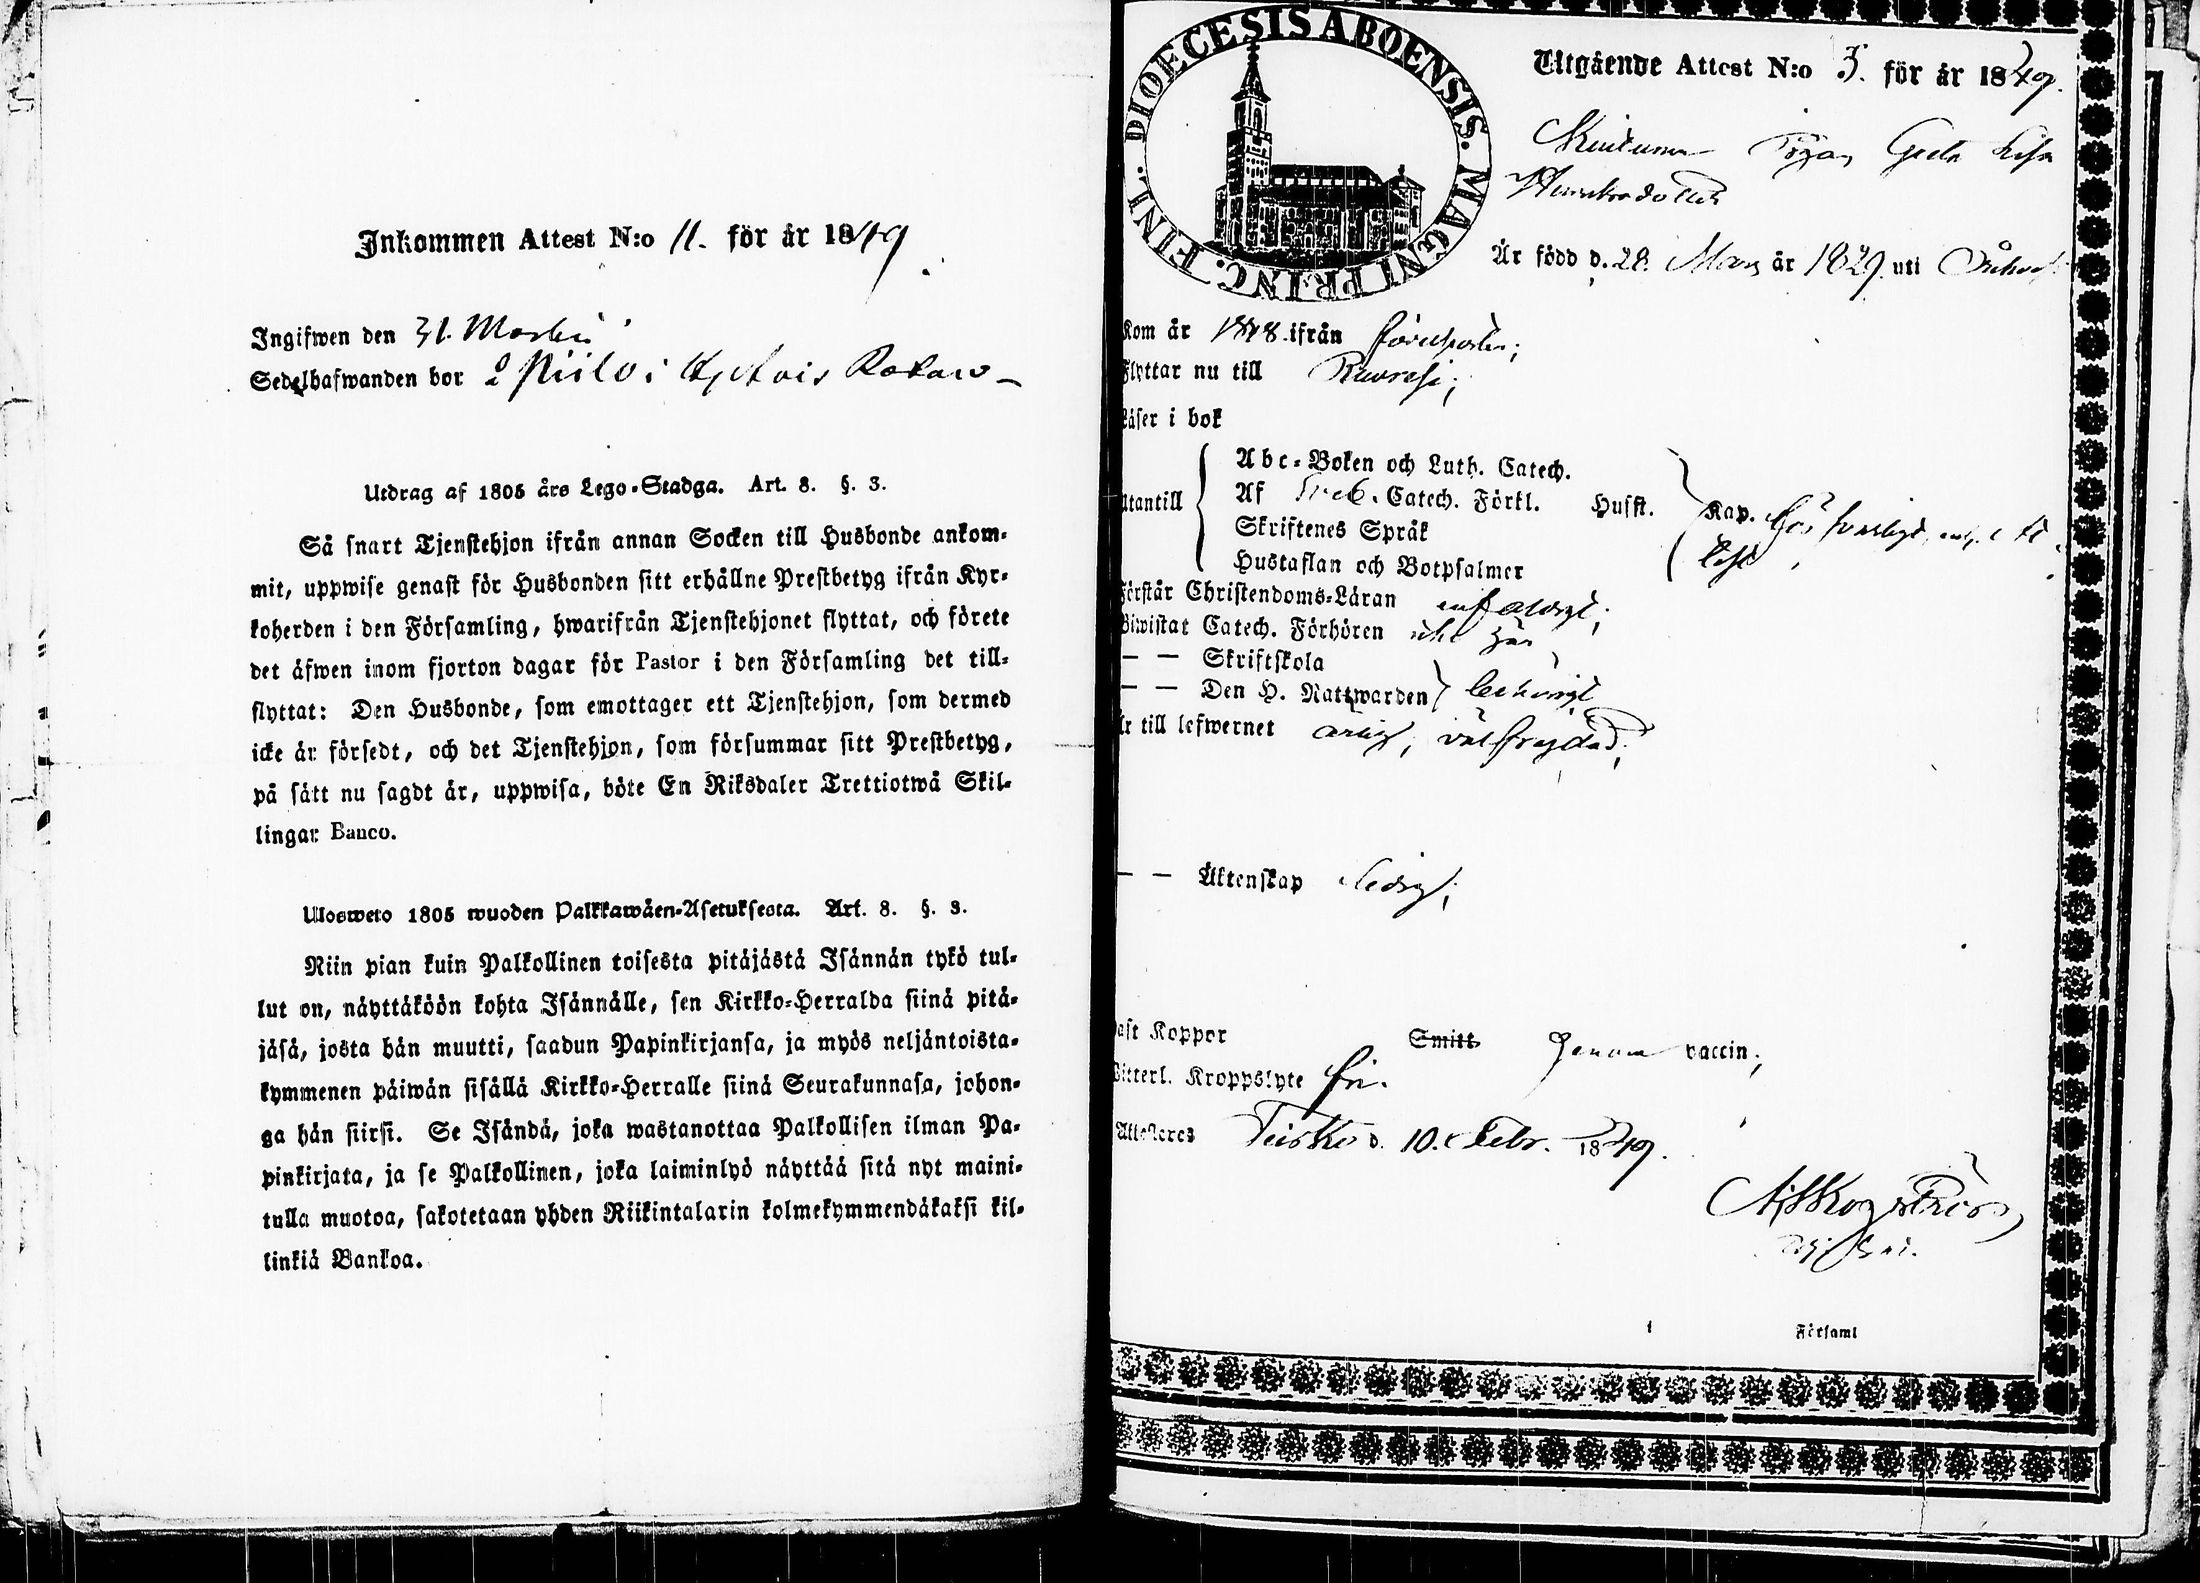 Inkommen Attest N:o 11. för år 1849
Ingifwen den 31. Martii
Sedelhafwanden bor
Utdrag af 1805 års Lego-Stadga. Art. 8. §. 3.
Så snart Tjenstehjon ifrån annan Socken till Husbonde ankom-
mit, uppwise genast för Husbonden sitt erhållne Prestbetyg ifrån Kyr-
koherden i den Församling, hwarifrån Tjenstehjonet flyttat, och förete
det äfwen inom fjorton dagar för Pastor i den Församling det till-
flyttat: Den Husbonde, som emottager ett Tjenstehjon, som dermed
icke är försedt, och det Tjenstehjon, som försummar sitt Prestbetyg,
på sätt nu sagdt är, uppwisa, böte En Riksdaler Trettiotwå Skil-
lingar Banco.
Ulosweto 1805 wuoden Palkkawäen-Asetuksesta. Art. 8. §. 3.
Niin pian kuin Palkollinen toisesta pitäjästä Isännän tykö tul-
lut on, näyttäköön kohta Isännälle, sen Kirkko-Herralda siinä pitä-
jäsä, josta hän muutti, saadun Papinkirjansa, ja myös neljäntoista-
kymmenen päiwän sisällä Kirkko-Herralle siinä Seurakunnasa, johon-
ga hän siirsi. Se Isändä, joka wastanottaa Palkollisen ilman Pa-
pinkirjata, ja se Palkollinen, joka laiminlyö näyttää sitä nyt maini-
tulla muotoa, sakotetaan yhden Riikintalarin kolmekymmendäkaksi kil-
linkiä Bankoa.
DIOECESIS ABOENSIS. MAGNI PRINC. FINL.
Utgående Attest N:o 3. för år 1849.
Pigan Greta Lisa
Är född d. 28. Mars år 1829. uti
Kom år 1848. ifrån
Flyttar nu till
Läser i bok
Utantill
Abc-Boken och Luth. Catech.
Af Sveb. Catech. Förkl. Husst. Kap.
Skriftenes Språk
Hustaflan och Botpsalmer
Förstår Christendoms-Läran enfaldigt;
Biwistat Catech. Förhören icke här
— — Skriftskola
— — Den H. Nattwarden behörigt
Är till lefwernet ärlig, välfrejdad;
— — Äktenskap ledig;
Haft Koppor Smitt. Genom vaccin;
Witterl. Kroppslyte fri.
Attesteres Teisko d. 10. Febr. 1849.
Församl